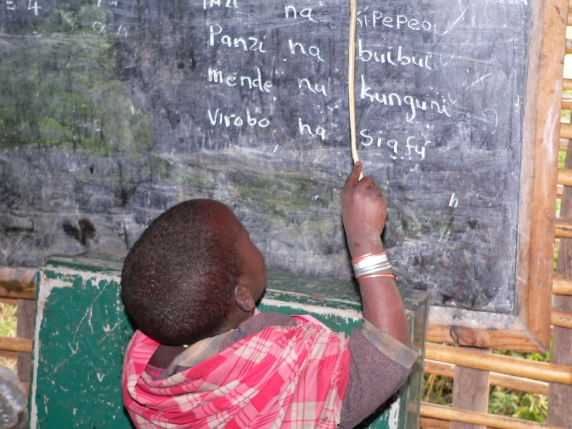 = 4
na kipepeo
Panzi na buibui
mende na kunguni
Virobo na siafu
h